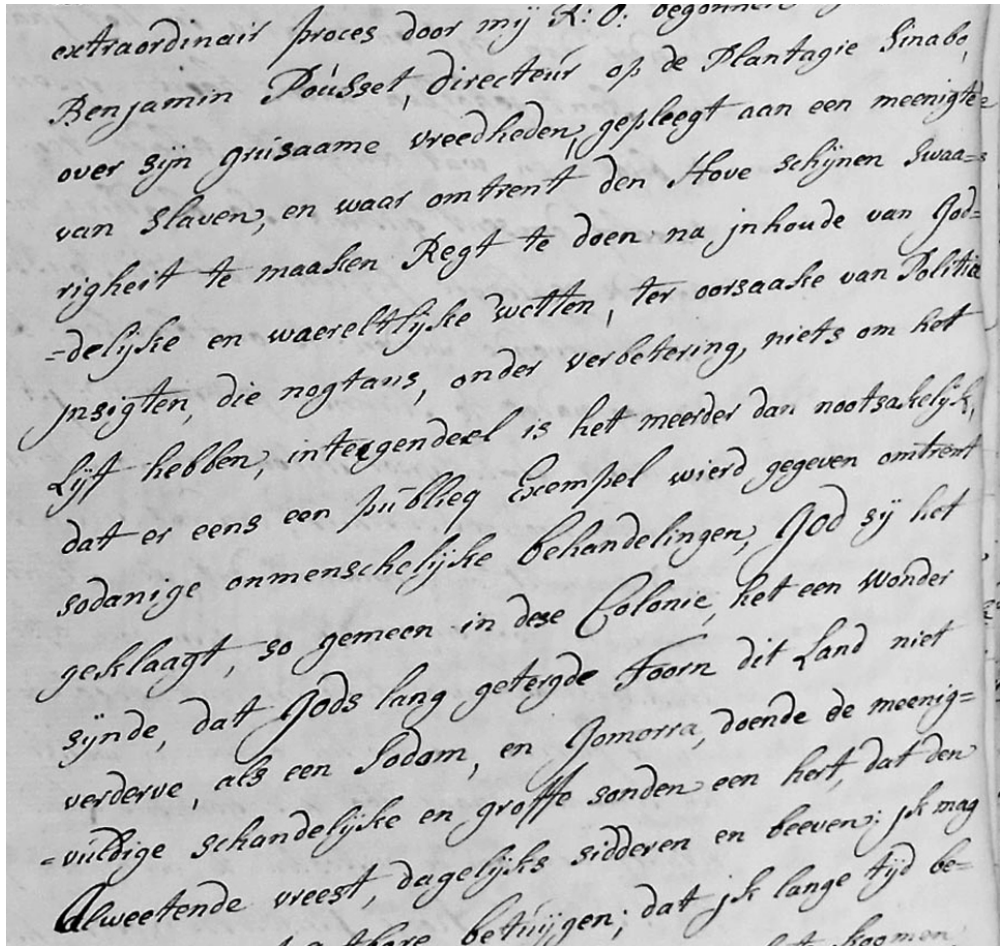 extraordinair proces door mij R: O: begonnen
Benjamin Pousset, directeur op de Plantagie Sinabo,
over sijn gruisaame vreedheden, gepleegt aan een meenigte
van Slaven, en waar omtrent den Hove schijnen swaa=
righeit te maaken Regt te doen na jnhoude van God=
=delijke en waereltlijke wetten, ter oorsaake van Politia
jnsigten, die nogtans, onder verbetering, niets om het
Lijf hebben, intergendeel is het meerder dan nootsakelijk,
dat er eens een publieq Exempel wierd gegeven omtrent
sodanige onmenschelijke behandelingen, God sij het
geklaagt, so gemeen in dese Colonie, het een wonder
sijnde, dat Gods lang getergde Toorn dit Land niet
verderve, als een Sodom, en Gomorra, doende de meenig=
=vuldige schandelijke en groffe sonden een hert, dat den
alweetende vreest, dagelijks sidderen en beeven; jk mag
betuijgen; dat jk lange tijd be=
koomen